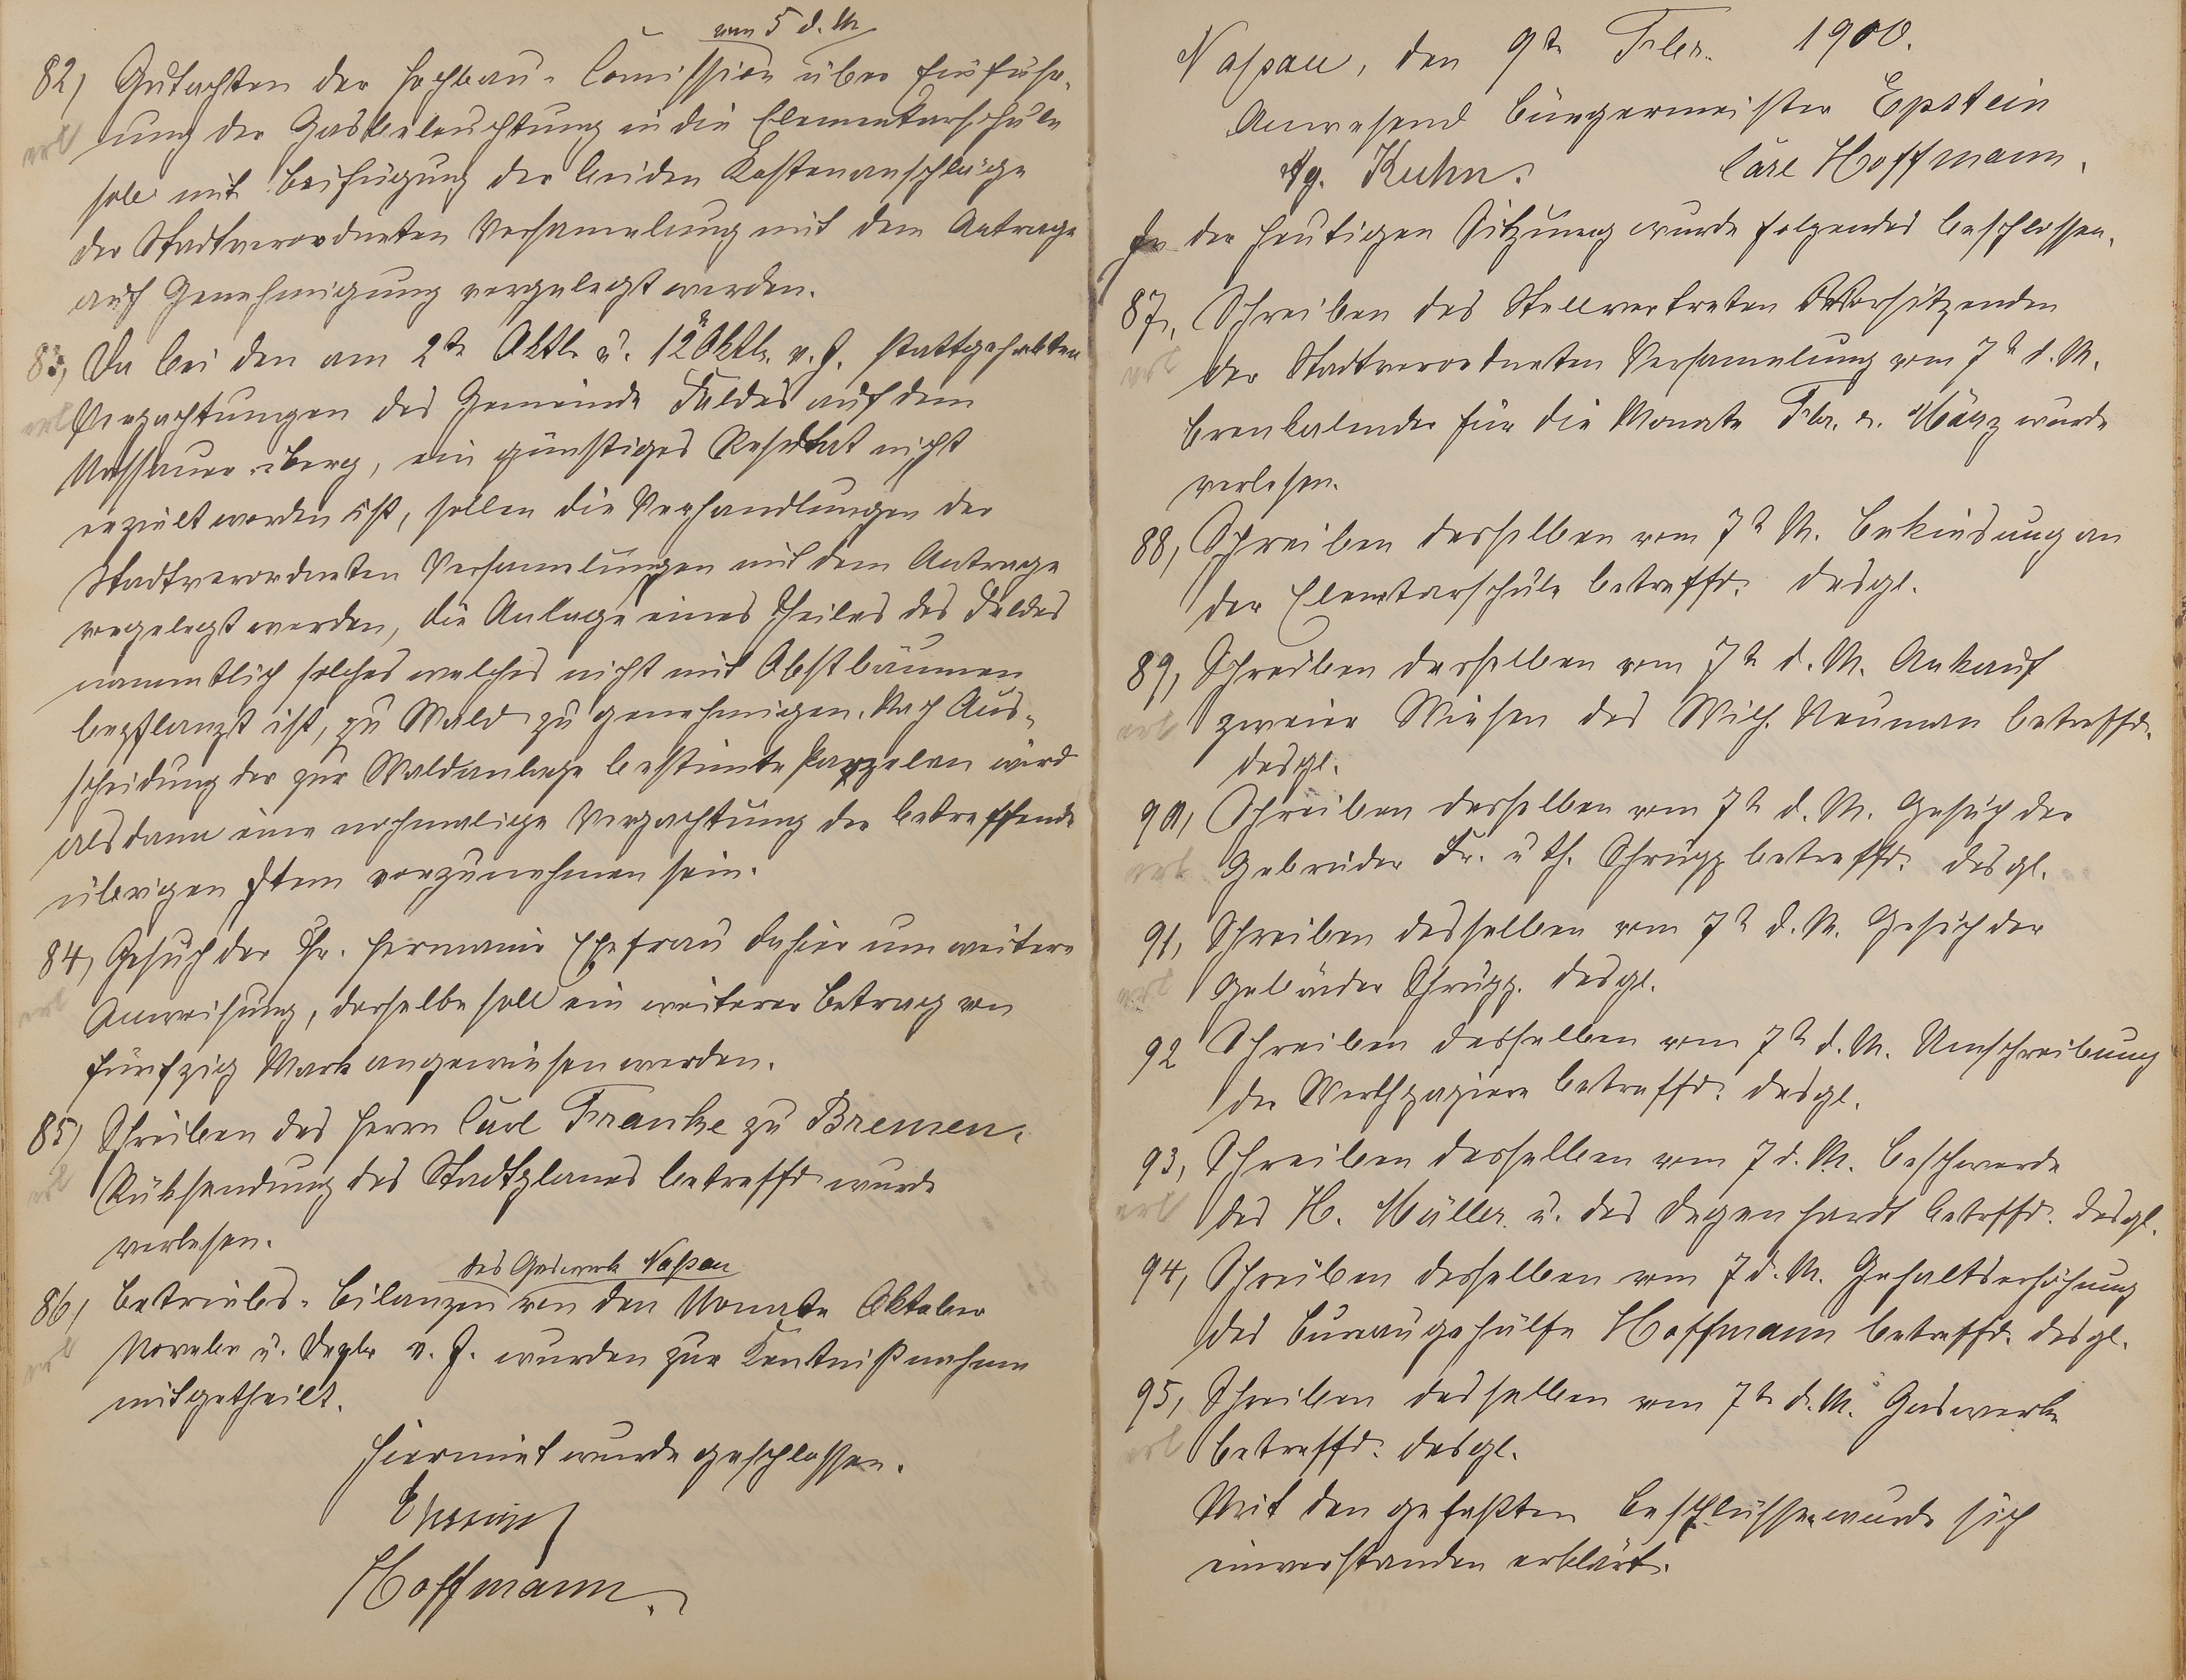 vom 5 d. M.
82, Gutachten der Hochbau-Comission über Einführ-
erl ung der Gasbeleuchtung in die Elementarschule
soll mit Beifügung der beiden Kostenanschläge
der Stadtverordneten Versamelung mit dem Antrage
auf Genehmigung vorgelegt werden.
83, Da bei den am 2tn Oktb. u. 12tn Oktb. v. J. stattgehabten
erl Verpachtungen des Gemeinde Feldes auf dem
Nassauer-Berg, ein günstiges Resultat nicht
erzielt worden ist, sollen die Verhandlungen der
Stadtverordneten Versamelungen mit dem Antrage
vorgelegt werden, die Anlage eines Theiles des Feldes
namentlich solches welches nicht mit Obstbäumen
bepflanzt ist, zu Wald zu genehmigen. Nach Aus-
scheidung der zur Waldanlage bestimte Parzelen wird
alsdann eine nochmalige Verpachtung der betreffende
übrigen Item vorzunehmen sein.
84, Gesuch der Hermann Ehefrau dahier um weitere
erl Anweisung, derselbe soll ein weiterer Betrag von
fünfzig Mark angewiesen werden.
85, Schreiben des Herrn Carl Franke zu Bremen,
erl Rüksendung des Stadtplanes betreffd. wurde
verlesen.
des Gaswerk Naßau
86, Betriebs-Bilanzen von den Monate Oktober
erl Novebr u. Dezbr v. J. wurden zur Kentnißnahme
mitgetheilt.
Hiermit wurde geschlossen.
Epstein
Hoffmann.
Naßau, den 9tn Febr. 1900.
Anwesend Bürgermeister Epstein
Ag. Kuhn. Carl Hoffmann.
In der heutigen Sitzung wurde folgendes beschlossen.
87, Schreiben des Stellvertreten Vorsitzenden
erl der Stadtverordneten Versamelung vom 7tn d. M.
Brenkalender für die Monate Febr. u. März wurde
verlesen.
88, Schreiben desselben vom 7tn M. Bekiesung an
der Elemtarschule betreffd. desgl.
89, Schreiben desselben vom 7tn d. M. Ankauf
erl zweier Wiesen des Wilh. Neuman betreffd.
desgl.
90, Schreiben desselben vom 7tn d. M. Gesuch der
erl Gebrüder Fr. u Th. Schrupp betreffd. desgl.
91, Schreiben desselben vom 7tn d. M. Gesuch der
erl Gebrüder Schrupp. desgl.
92 Schreiben desselben vom 7tn d. M. Umschreibung
der Werthpapiere betreffd. desgl.
93, Schreiben desselben vom 7 d. M. Beschwerde
erl des H. Müller u. des Degenhardt betrffd. desgl.
94, Schreiben desselben vom 7 d. M. Gehaltserhöhung
des Bureaugehülfe Hoffmann betreffd. desgl.
95, Schreiben desselben vom 7tn d. M. Gaswerk
erl betreffd. desgl.
Mit den gefaßten Beschlüssen wurde sich
einverstanden erklärt.